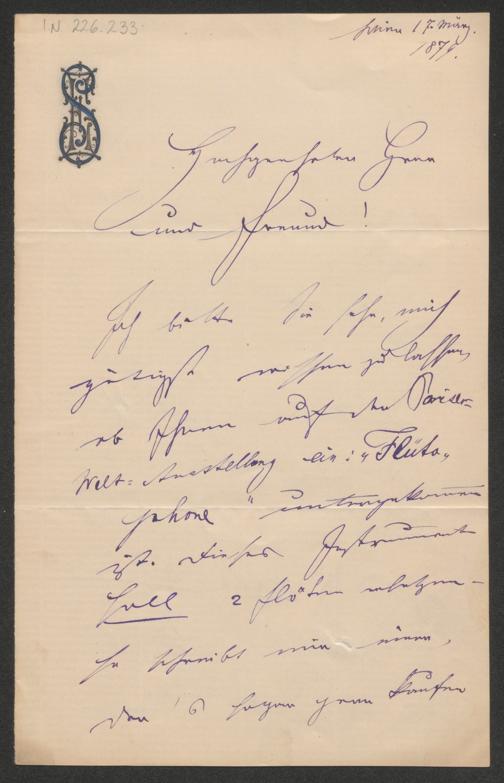 I.N. 226.233
Wien 17. März
187
Hochgeehrter Herr
und Freund!
Ich bitte Sie sehr, mich
gütigst wissen zu lassen,
ob Ihnen auf der Pariser-
Welt-Ausstellung ein: „Flüto„
phone" untergekommen
ist. Dieses Instrument
soll 2 Flöten ersetzen –
so schreibt mir einer,
der 's sogar gern kaufen